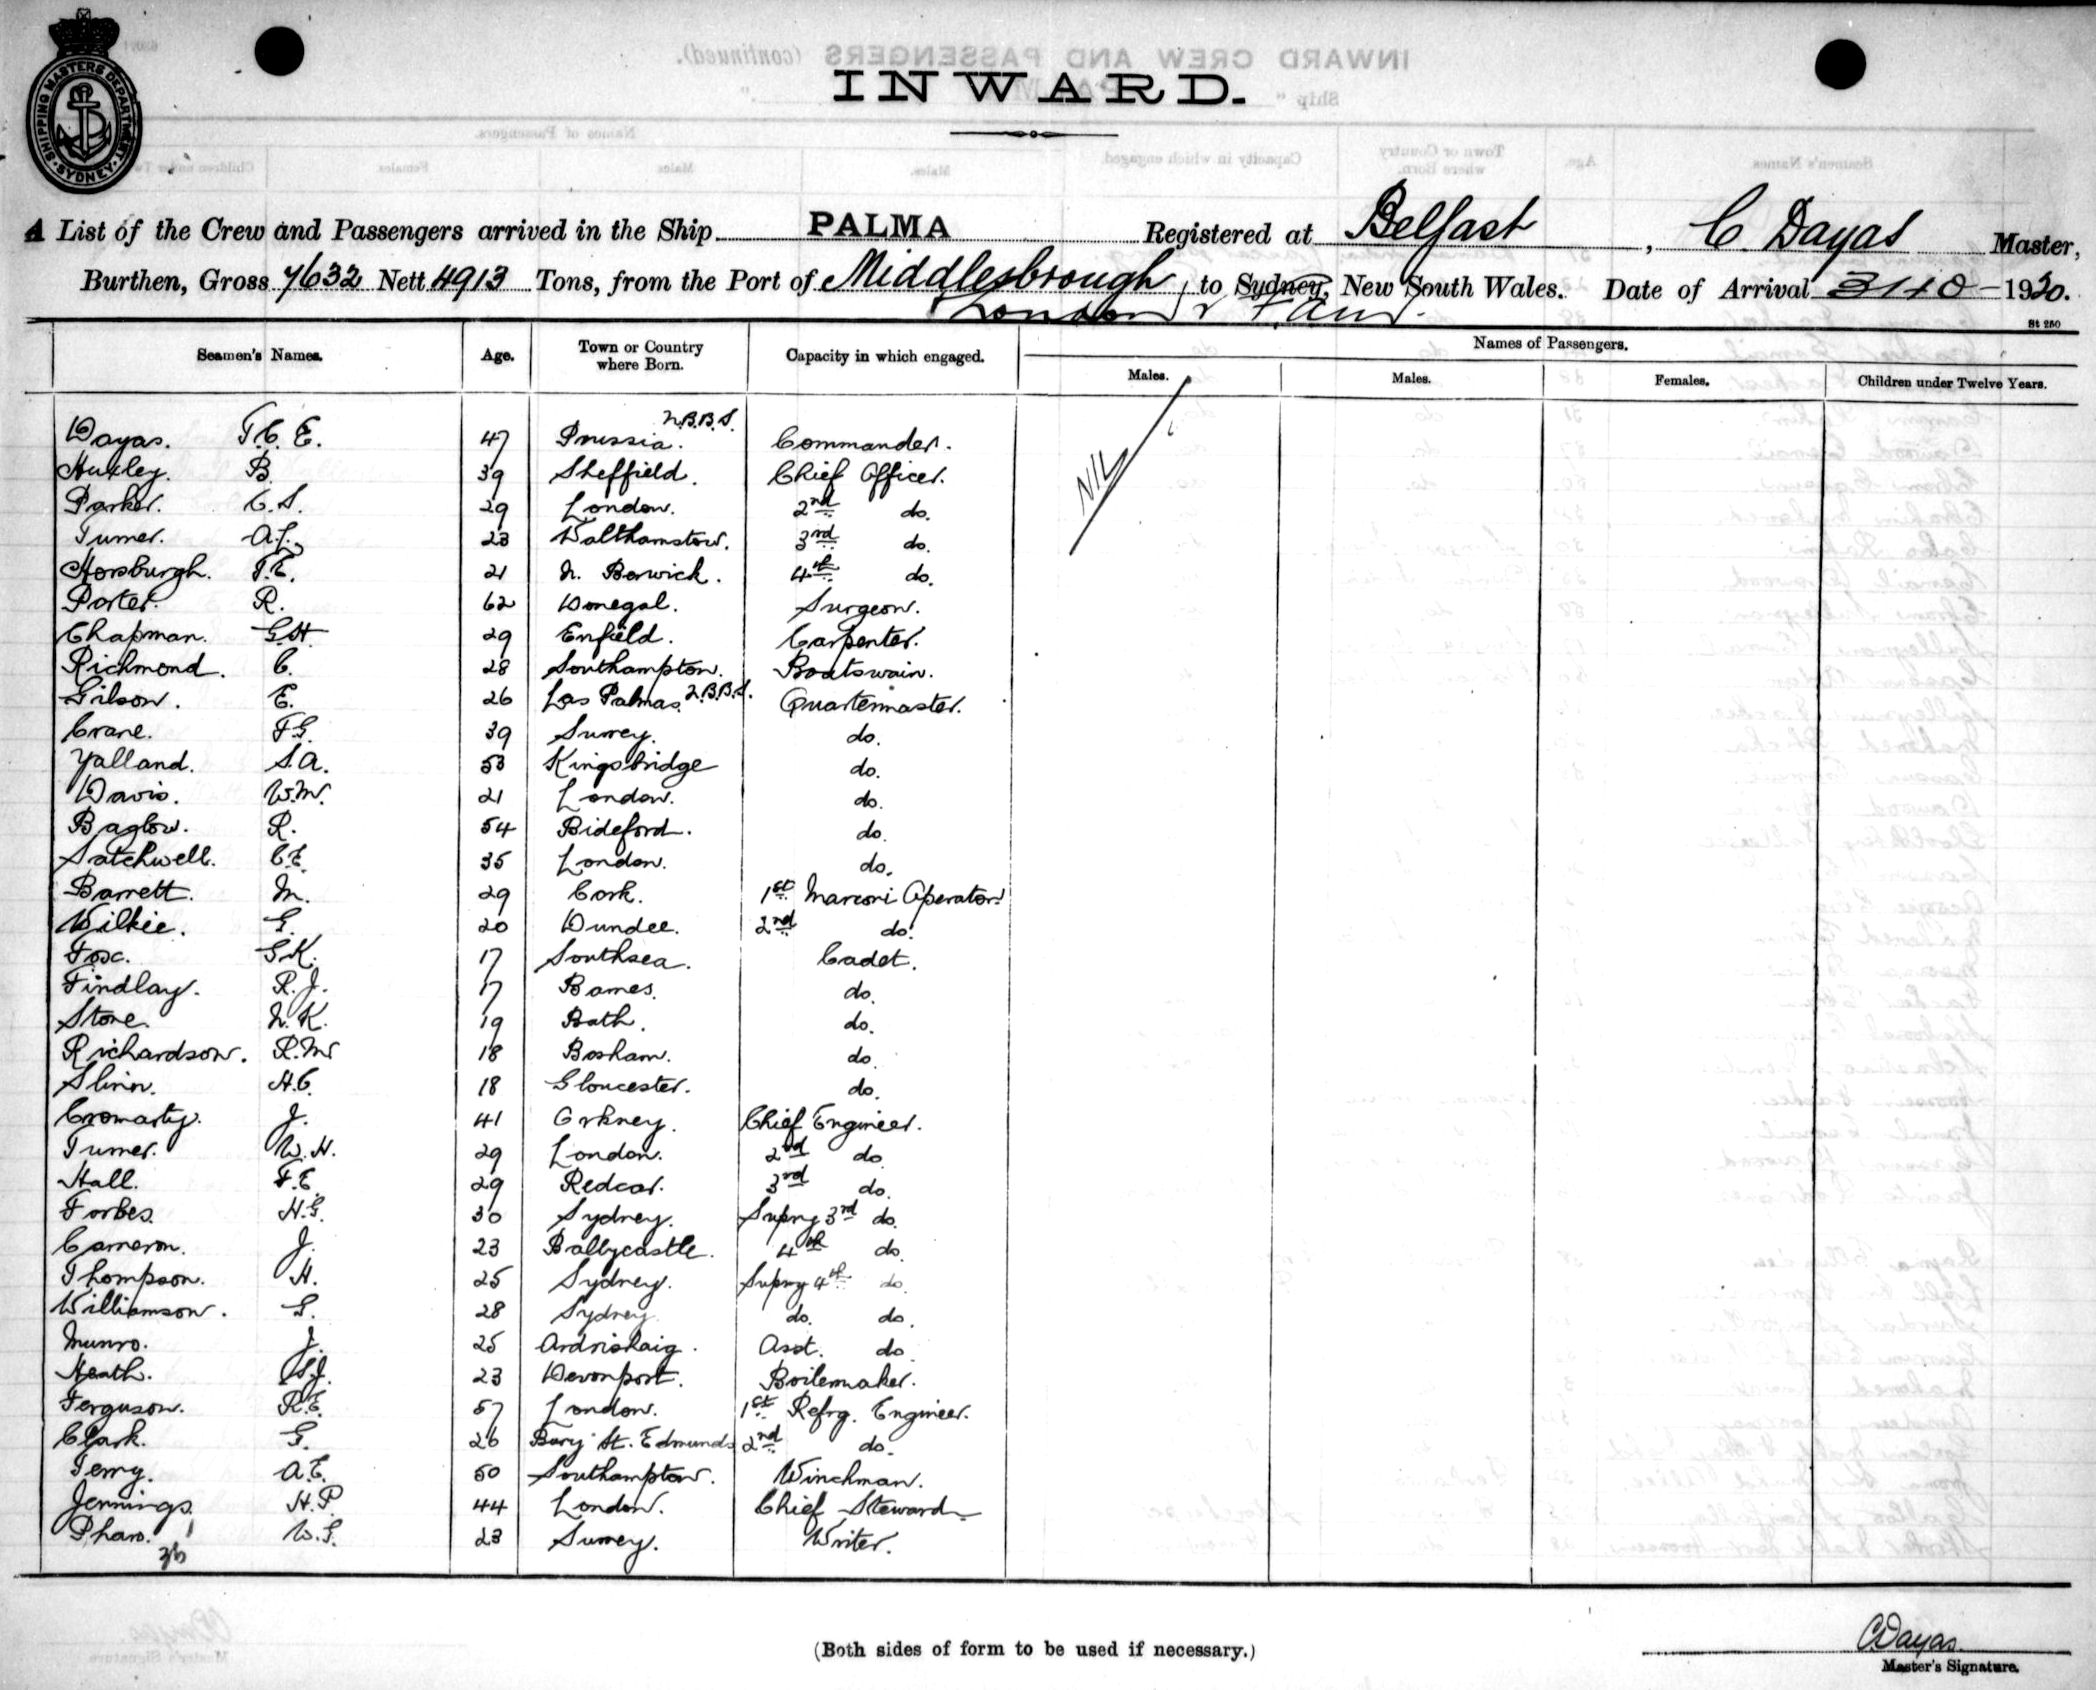 SHIPPING MASTERS DEPARTMENT
SYDNEY
INWARD.
A List of the Crew and Passengers arrived in the Ship PALMA Registered at Belfast, C. Dayas Master,
Burthen, Gross 7632 Nett 4913 Tons, from the Port of Middlesbrough, to Sydney, New South Wales. Date of Arrival 1920.
London &
St 250
Seamen's Names. Age. Town or Country where Born. Capacity in which engaged. Names of Passengers.
Males. Males. Females. Children under Twelve Years.
NIL
Dayas. T.C.E. 47 Prussia. N.B.B.S. Commander.
Huxley. B. 39 Sheffield. Chief Officer.
Parker. C.S. 29 London. 2nd do.
Turner. A.L. 23 Walthamstow. 3rd do.
Horsburgh. T.E. 21 N. Berwick. 4th do.
Porter. R. 62 Donegal. Surgeon.
Chapman. G.H. 29 Enfield. Carpenter.
Richmond. C. 28 Southampton. Boatswain.
Gilson. E. 26 Las Palmas. N.B.B.S. Quartermaster.
Crane. F.G. 39 Surrey. do.
Yalland. S.A. 53 Kingsbridge do.
Davis. W.M. 21 London. do.
Baglow. R. 54 Bideford. do.
Satchwell. C.E. 35 London. do.
Barrett. M. 29 Cork. 1st Marconi Operator.
Wilkie. G. 20 Dundee. 2nd do.
Fox. G.K. 17 Southsea. Cadet.
Findlay. R.J. 17 Barnes. do.
Stone. N.K. 19 Bath. do.
Richardson. R.M. 18 Bosham. do.
Slinn. H.C. 18 Gloucester. do.
Cromarty. J. 41 Orkney. Chief Engineer.
Turner. W.H. 29 London. 2nd do.
Hall. F.E. 29 Redcar. 3rd do.
Forbes. H.G. 30 Sydney. Supny 3rd do.
Cameron. J. 23 Ballycastle. 4th do.
Thompson. H. 25 Sydney. Supny 4th do.
Williamson. G. 28 Sydney do. do.
Munro. J. 25 Ardrishaig. Asst. do.
Heath. 23 Devonport. Boilermaker.
Ferguson. R.E. 57 London. 1st Refrg. Engineer.
Clark. G. 26 Bury St. Edmunds 2nd do.
Terry. A.E. 50 Southampton. Winchman.
Jennings. H.P. 44 London. Chief Steward
Pharo. W.G. 23 Surrey. Writer.
(Both sides of form to be used if necessary.)
C Dayas.
Master's Signature.